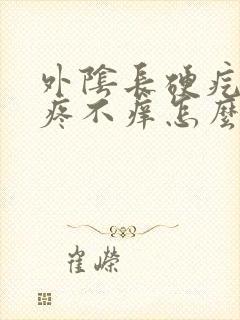 外陰長硬疙
疼不痒怎麼
崔嶸